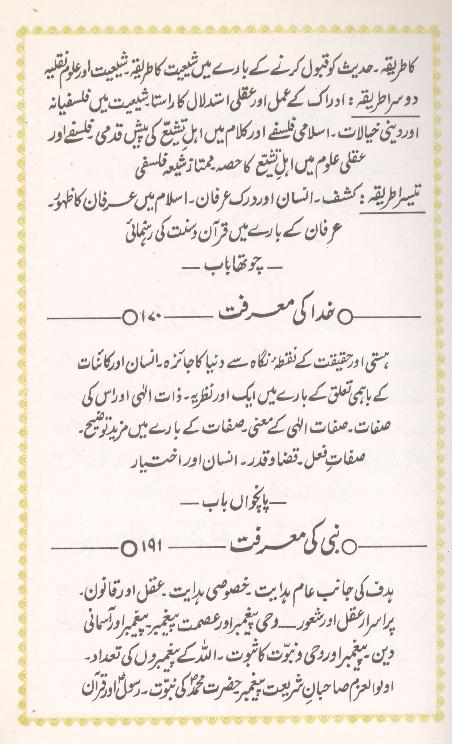 کا طریقہ۔ حدیث کو قبول کرنے کے بارے میں شیعیت کا طریقہ۔ شیعیت اور علوم نقلیہ
دوسرا طریقہ : ادراک کے عمل اور عقلی استدلال کا راستا۔ شیعیت میں فلسفیانہ
اور دینی خیالات۔ اسلامی فلسفے اور کلام میں اہلِ تشیّع کی پیش قدمی۔ فلسفے اور
عقلی علوم میں اہلِ تشیّع کا حصہ۔ ممتاز شیعہ فلسفی
تیسرا طریقہ : کشف۔ انسان اور درک عرفان۔ اسلام میں عرفان کا ظہور۔
عرفان کے بارے میں قرآن و سنت کی رہنمائی
— چوتھا باب —
خدا کی معرفت ۱۷۰
ہستی اور حقیقت کے نقطۂ نگاہ سے دنیا کا جائزہ۔ انسان اور کائنات
کے باہمی تعلق کے بارے میں ایک اور نظریہ۔ ذات الٰہی اور اس کی
صفات۔ صفات الٰہی کے معنی۔ صفات کے بارے میں مزید توضیح۔
صفاتِ فعل۔ قضا و قدر۔ انسان اور اختیار
— پانچواں باب —
نبی کی معرفت ۱۹۱
ہدف کی جانب عام ہدایت۔ خصوصی ہدایت۔ عقل اور قانون۔
پراسرار عقل اور شعور — وحی پیغمبر اور عصمت پیغمبر۔ پیغمبر اور آسمانی
دین۔ پیغمبر اور وحی و نبوّت کا ثبوت۔ اللہ کے پیغمبروں کی تعداد۔
اولوالعزم صاحبانِ شریعت پیغمبر حضرت محمدؐ کی نبوّت۔ رسولؐ اور قرآن